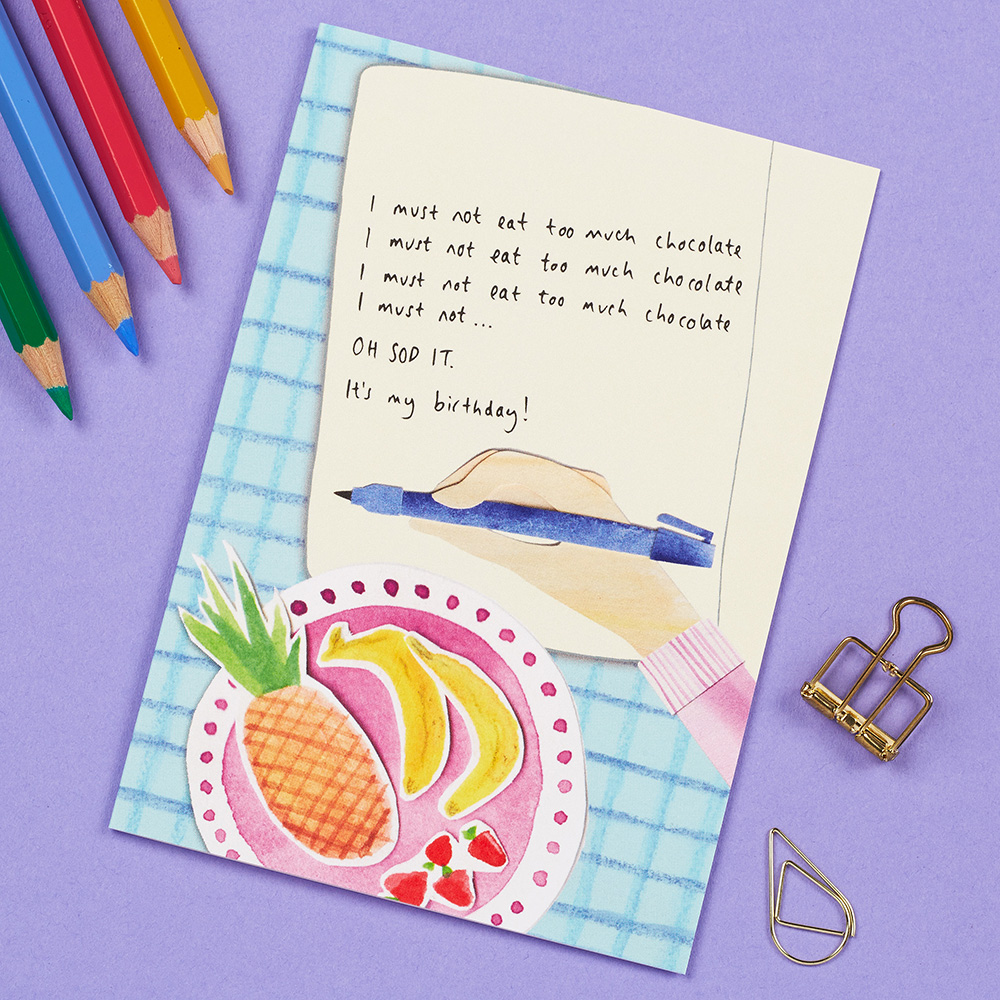 I must not eat too much chocolate
I must not eat too much chocolate
I must not eat too much chocolate
I must not...
OH SOD IT.
It's my birthday!